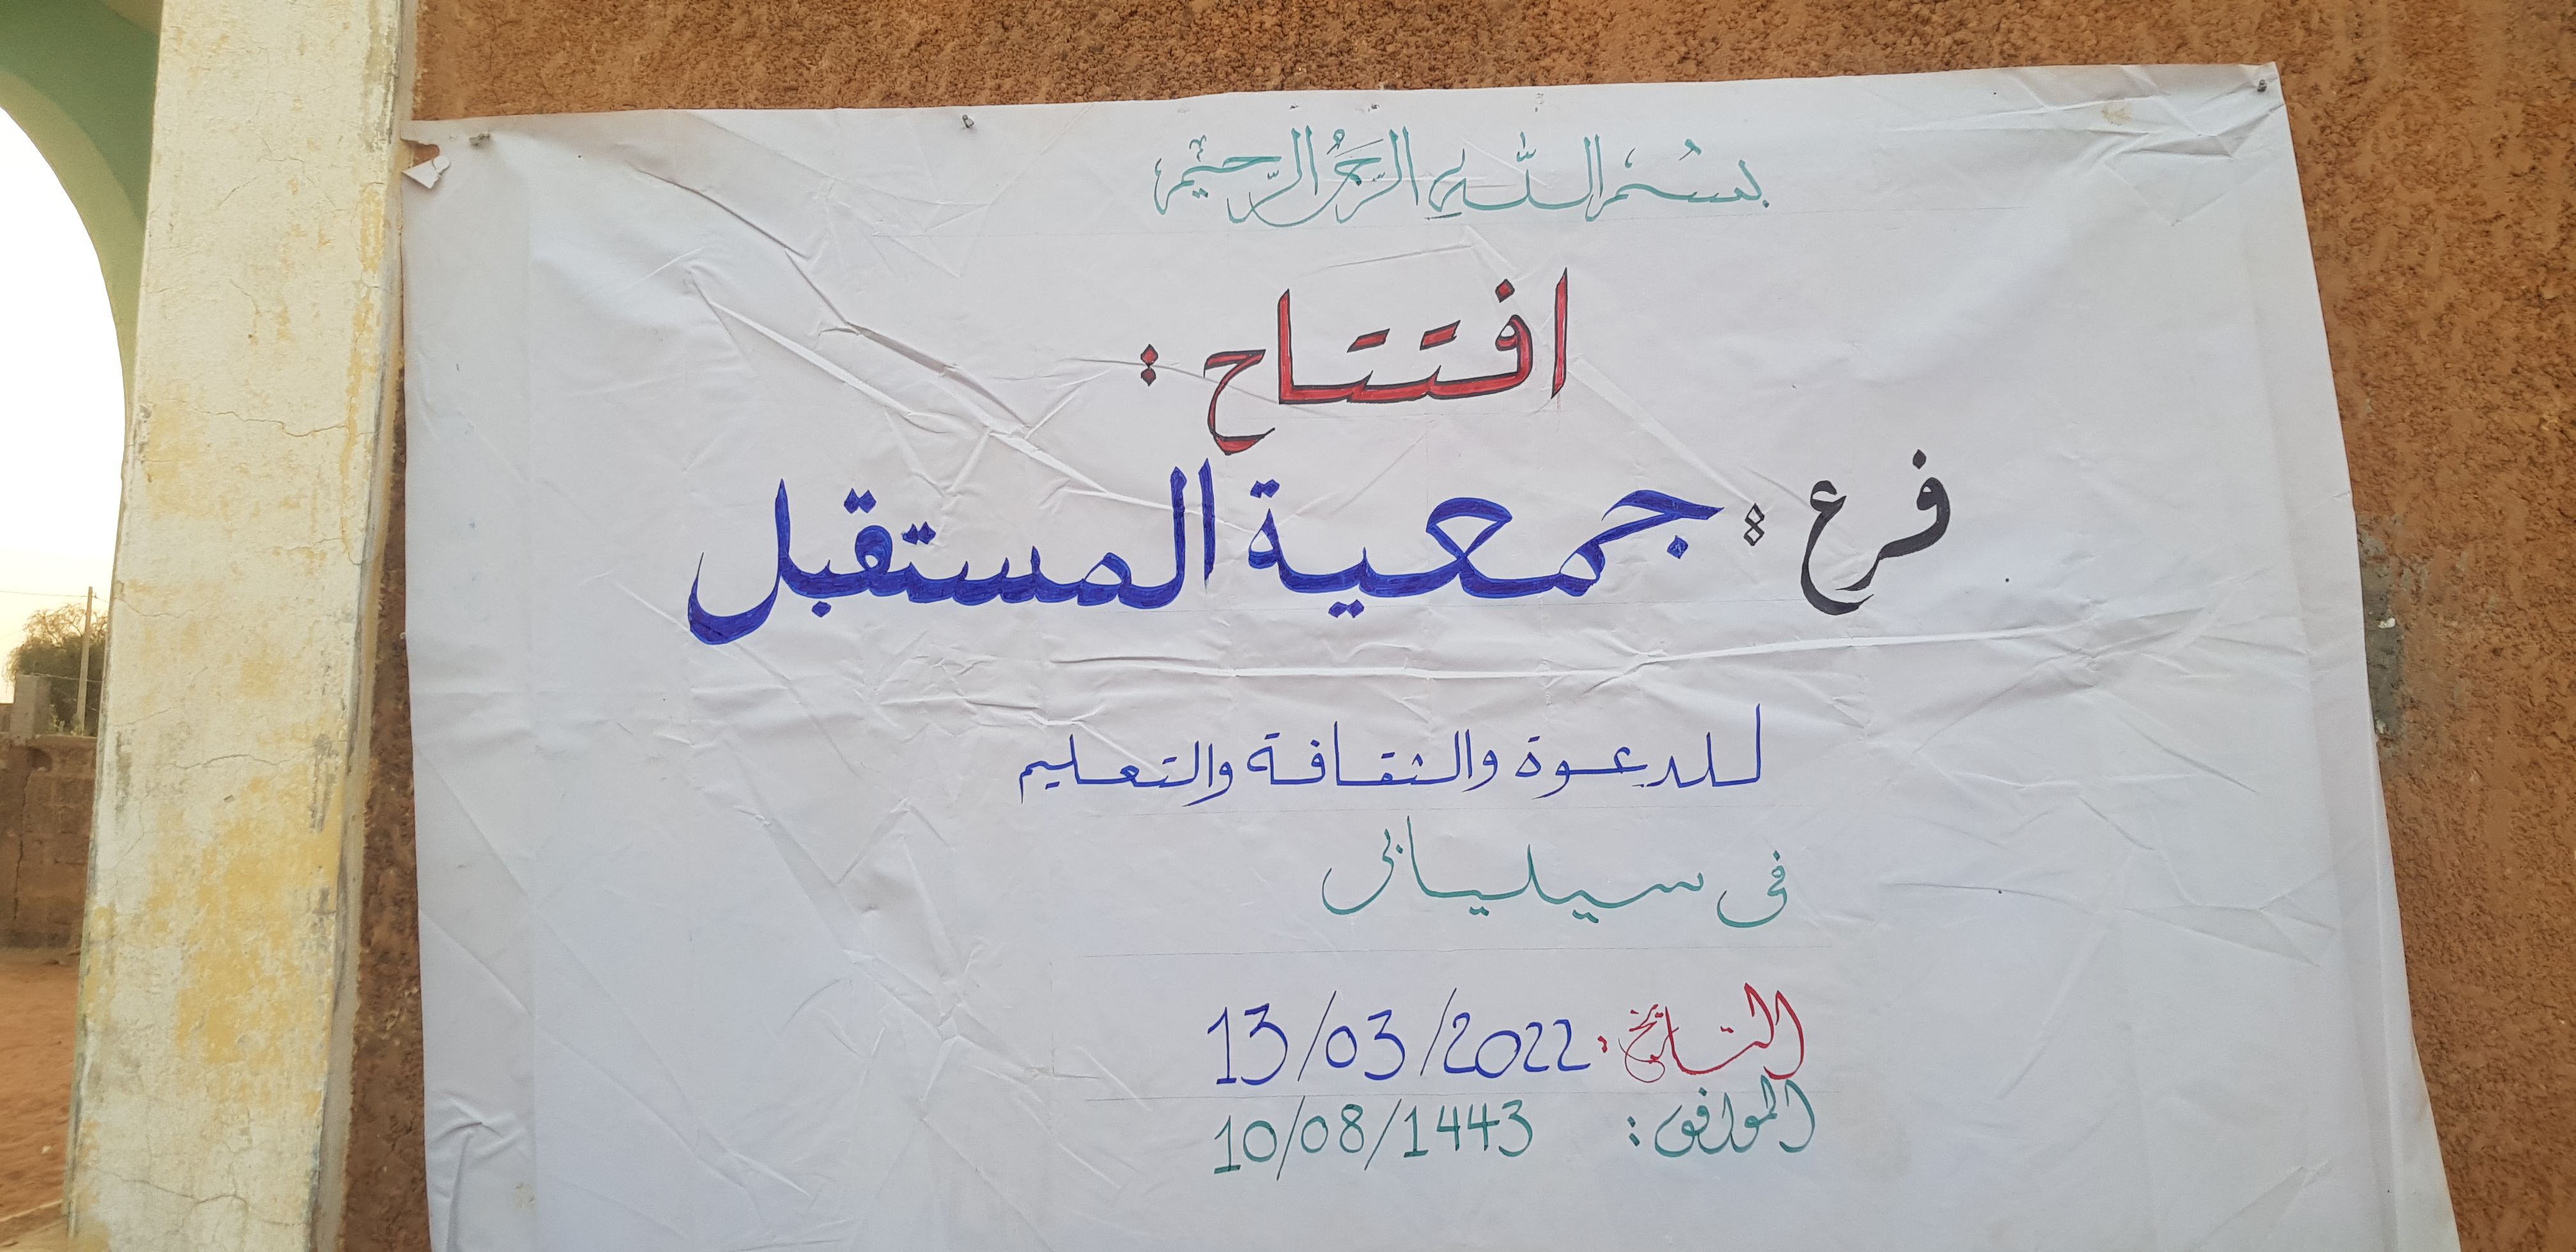 بسم الله الرحمن الرحيم
افتتاح :
فرع : جمعية المستقبل
للدعوة والثقافة والتعليم
فى سيليبابى
التاريخ: 13/03/2022
الموافق: 10/08/1443